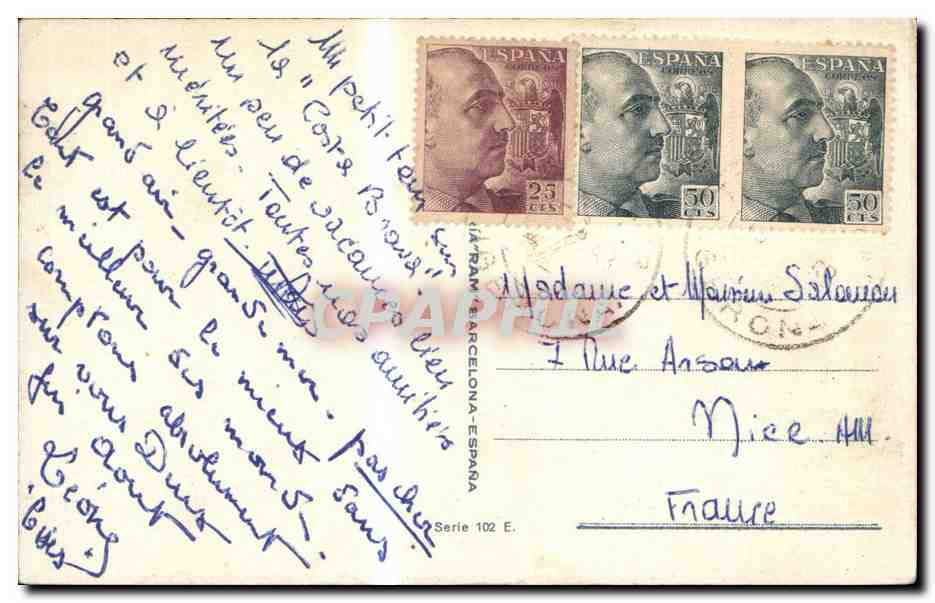 Un petit tour sur
la "Costa Brava"
un peu de vacances bien
méritées - Toutes mes amitiés
et à bientôt.
grand air - grande mer - pas cher
Tout est pour le mieux dans
le meilleur des mondes -
comptons absolument
sur vous Deux
fin Août
ESPAÑA
CORREOS
25
CTS
ESPAÑA
CORREOS
50
CTS
ESPAÑA
CORREOS
50
CTS
BARCELONA-ESPAÑA
Madame et Monsieur Salomon
7 Rue
Nice AM.
France
Serie 102 E.
CPAPHIL